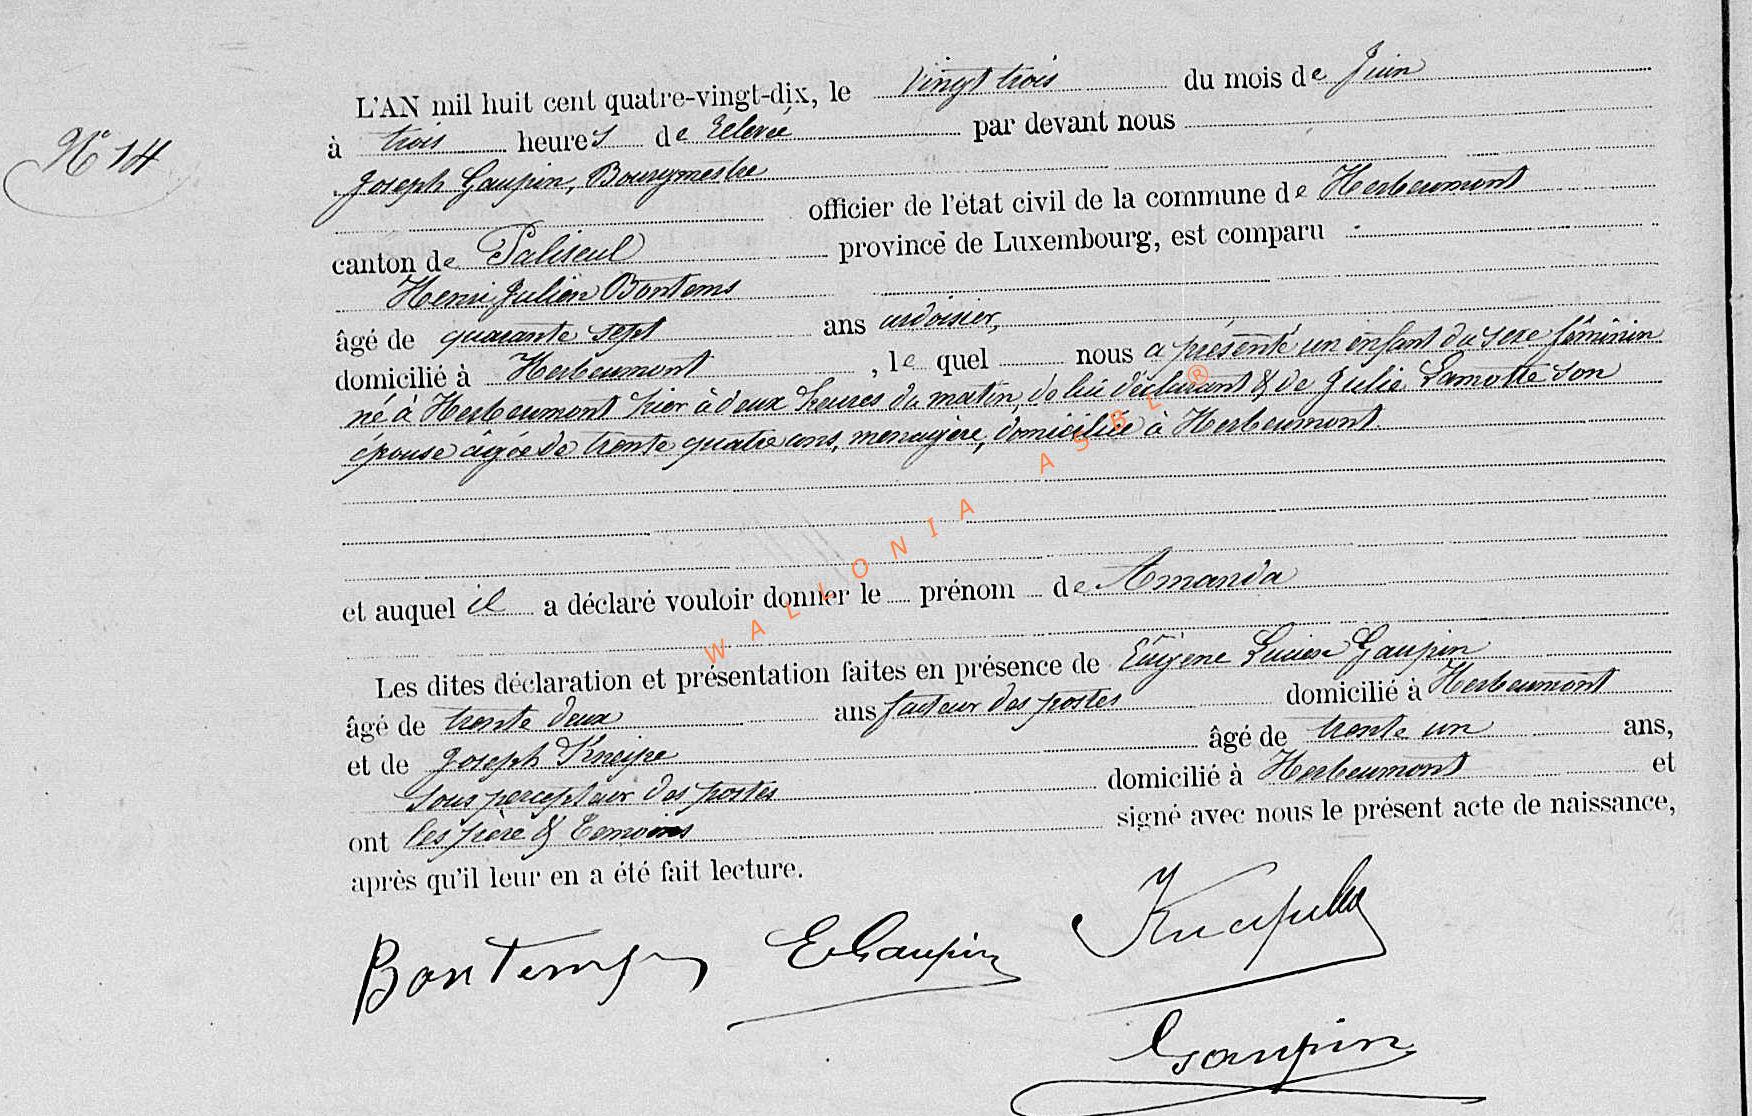 L'AN mil huit cent quatre-vingt-dix, le vingt trois du mois de Juin
N° 14
à trois heures de relevée par devant nous
Joseph Gaupin, Bourgmestre
officier de l'état civil de la commune de Herbeumont
canton de Paliseul province de Luxembourg, est comparu
Henri Julien Bontems
âgé de quarante sept ans ardoisier,
domicilié à Herbeumont, le quel nous a présenté un enfant du sexe féminin
né à Herbeumont hier à deux heures du matin, de lui déclarant & de Julie Lamotte son
épouse âgée de trente quatre ans, menagère, domiciliée à Herbeumont
et auquel il a déclaré vouloir donner le prénom de Amanda
Les dites déclaration et présentation faites en présence de Eugène Lucien Gaupin
âgé de trente deux ans facteur des postes domicilié à Herbeumont
et de Joseph Kneipe âgé de trente un ans,
sous percepteur des postes domicilié à Herbeumont et
ont les père & temoins signé avec nous le présent acte de naissance,
après qu'il leur en a été fait lecture.
Bontemps EGaupin
Gaupin
WALLONIA ASBL ®